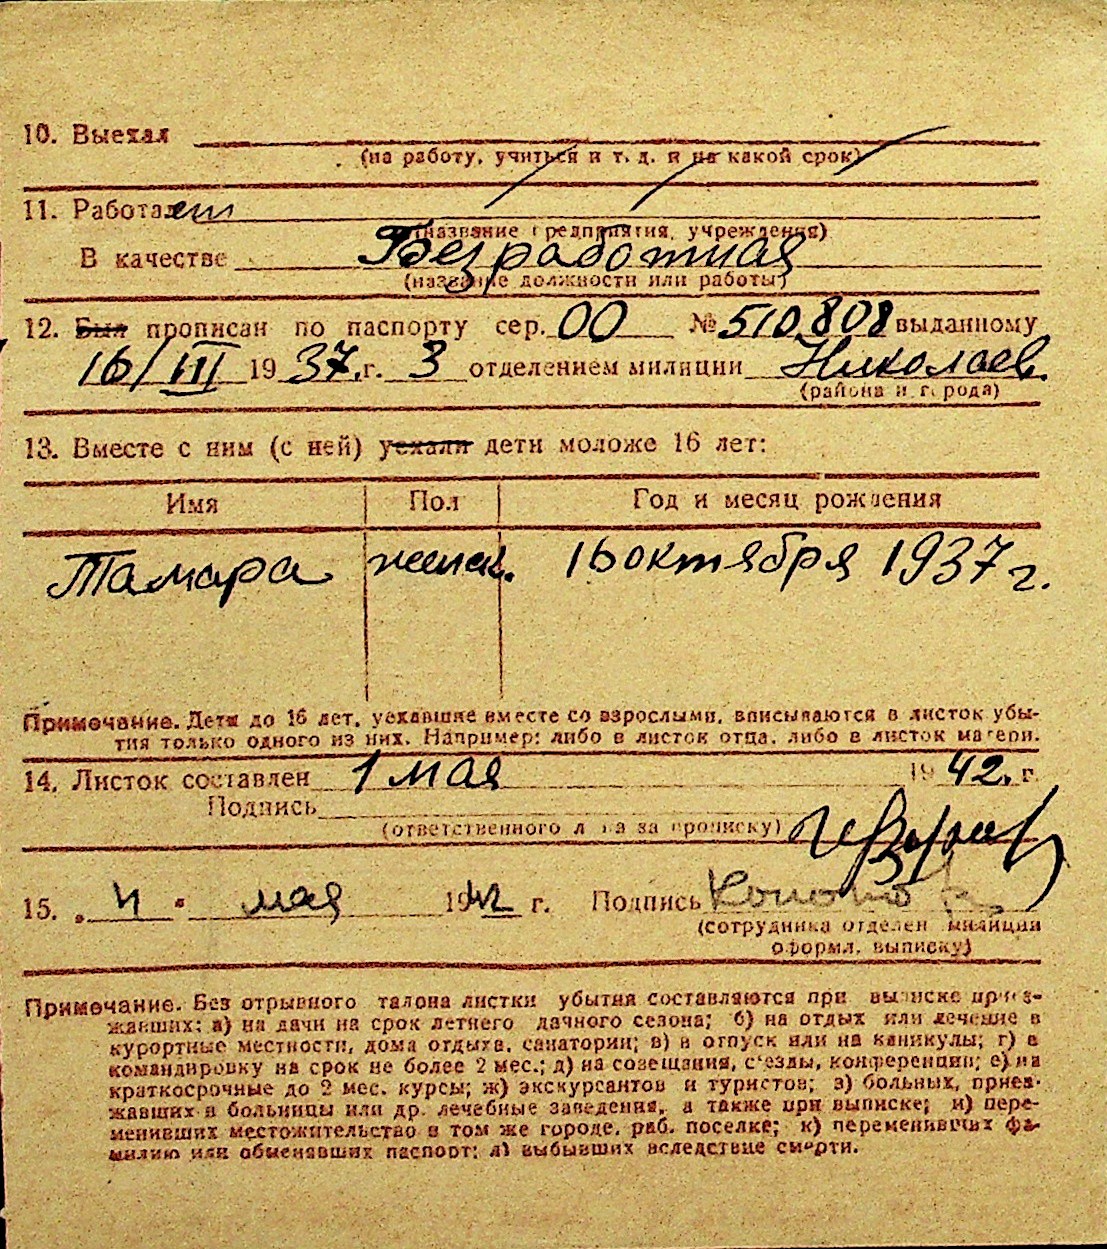 10. Выехал
(на работу, учиться и т. д. и на какой срок)
11. Работает
(название предприятия, учреждения)
В качестве Безработная
(название должности или работы)
12. Был прописан по паспорту сер. 00 № 510808 выданному
16/III 1937.г. 3 отделением милиции Николаев.
(района и города)
13. Вместе с ним (с ней) уехали дети моложе 16 лет:
Имя Пол Год и месяц рождения
Тамара женск. 16 октября 1937 г.
Примечание. Дети до 16 лет, уехавшие вместе со взрослыми, вписываются в листок убы-
тия только одного из них. Например: либо в листок отца, либо в листок матери.
14. Листок составлен 1 мая 1942. г.
Подпись
(ответственного лица за прописку)
15. „4" мая 1942 г. Подпись
(сотрудника отделен милиции
оформл. выписку)
Примечание. Без отрывного талона листки убытия составляются при выписке приез-
жавших: а) на дачи на срок летнего дачного сезона; б) на отдых или лечение в
курортные местности, дома отдыха, санатории; в) в отпуск или на каникулы; г) в
командировку на срок не более 2 мес.; д) на совещания, съезды, конференции; е) на
краткосрочные до 2 мес. курсы; ж) экскурсантов и туристов; з) больных, приез-
жавших в больницы или др. лечебные заведения, а также при выписке; и) пере-
менивших местожительство в том же городе, раб. поселке; к) переменивших фа-
милию или обменявших паспорт; л) выбывших вследствие смерти.